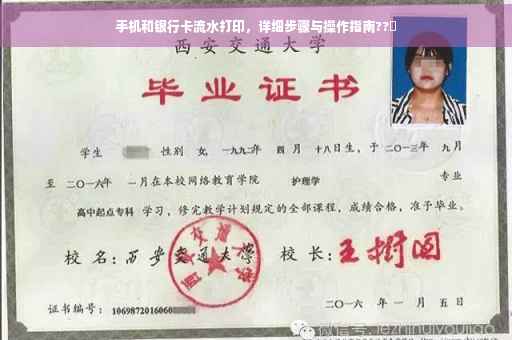 手机和银行卡流水打印，详细步骤与操作指南??
西安交通大学
毕业证书
学生 性别 女, 一九九二年 四月 十八日生, 于 二〇一三年 九月
至 二〇一六年 一月在本校网络教育学院 护理学 专业
高中起点专科 学习, 修完教学计划规定的全部课程, 成绩合格, 准予毕业。
校 名: 西安交通大学 校 长: 王树国
西安交通大学
证书编号: 1069872016060
二〇一六 年 一 月 五 日
微信号: jezhihuiyoujiao